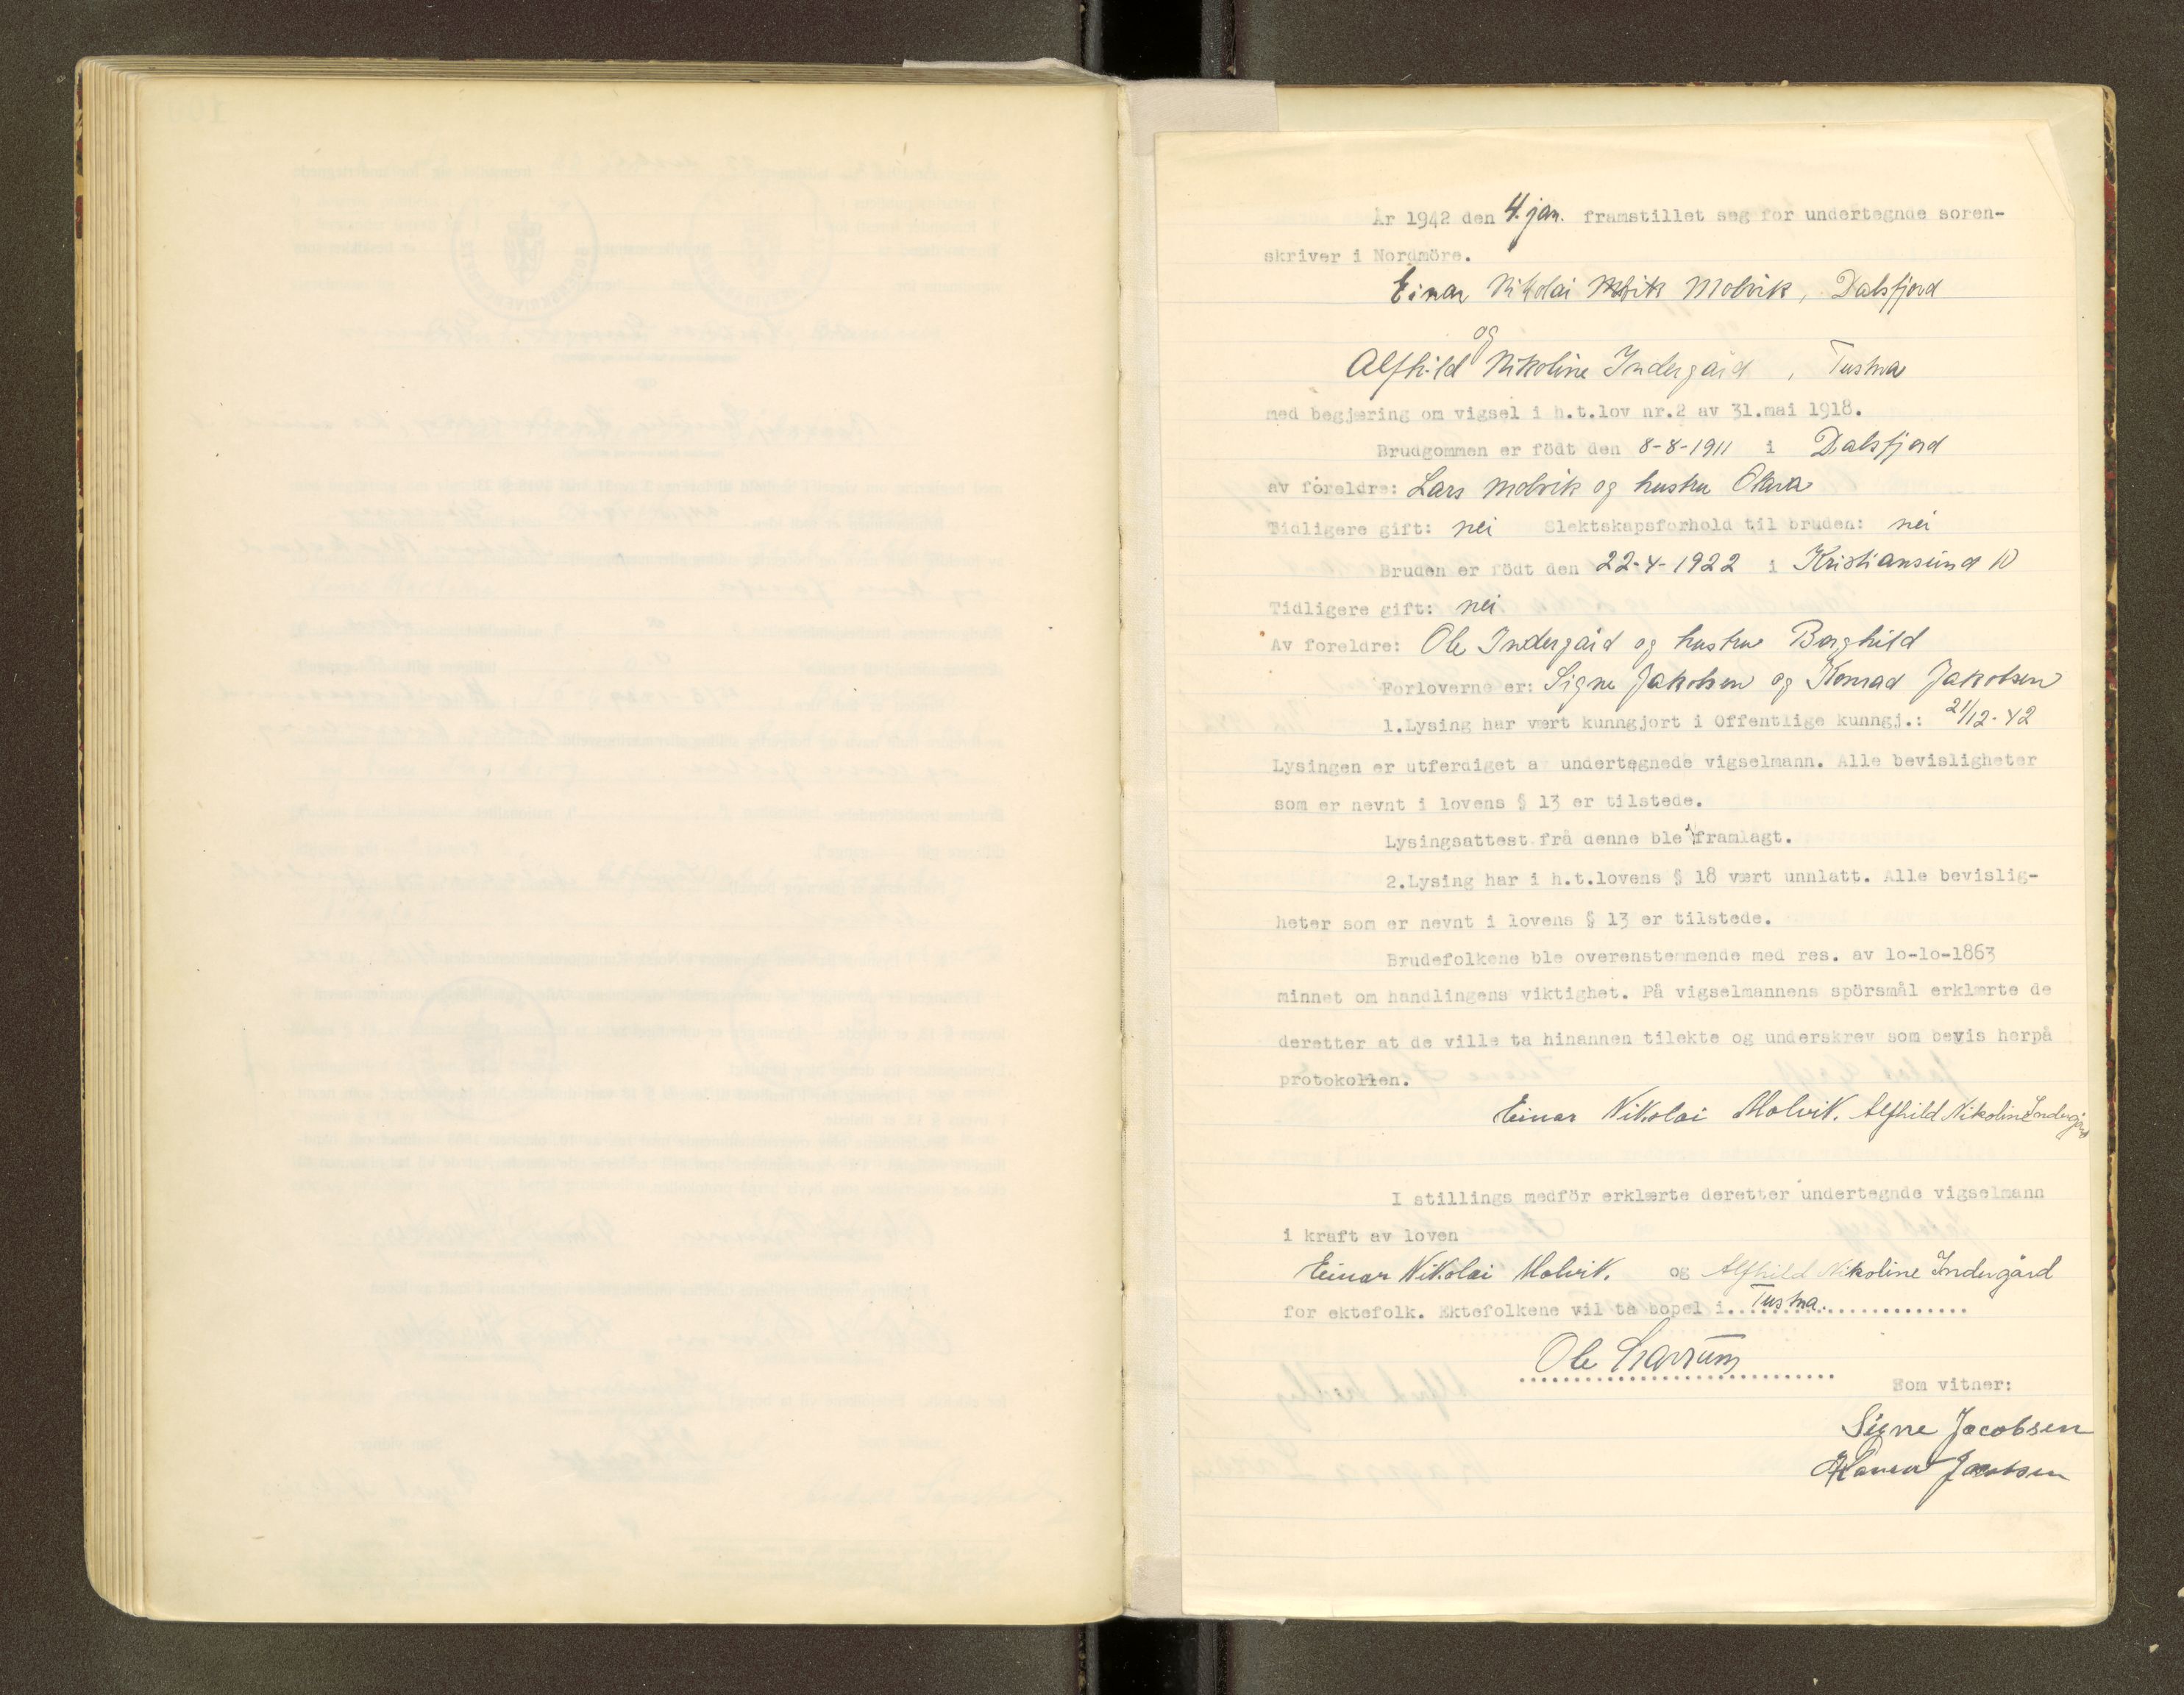 År 1942 den 4. jan. framstillet seg for undertegnde soren-
skriver i Nordmöre.
Einar Nikolai Molvik, Dalsfjord
og
Alfhild Nikoline Indergård, Tustna
med begjæring om vigsel i h.t.lov nr.2 av 31.mai 1918.
Brudgommen er födt den 8-8-1911 i Dalsfjord
av foreldre: Lars Molvik og hustru Olava
Tidligere gift: nei Slektskapsforhold til bruden: nei
Bruden er födt den 22-4-1922 i Kristiansund N
Tidligere gift: nei
Av foreldre: Ole Indergård og hustru Borghild
Forloverne er: Signe Jakobsen og Konrad Jakobsen
1.Lysing har vært kunngjort i Offentlige kunngj.: 21/12-42
Lysingen er utferdiget a undertegnede vigselmann. Alle bevisligheter
som er nevnt i lovens § 13 er tilstede.
Lysingsattest frå denne ble framlagt.
2.Lysing har i h.t.lovens § 18 vært unnlatt. Alle bevislig-
heter som er nevnt i lovens § 13 er tilstede.
Brudefolkene ble overenstemmende med res. av lo-lo-1863
minnet om handlingens viktighet. På vigselmannens spörsmål erklærte de
deretter at de ville ta hinannen tilekte og underskrev som bevis herpå
protokollen.
Einar Nikolai Molvik. Alfhild Nikoline Indergård
I stillings medför erklærte deretter undertegnde vigselmann
i kraft av loven
Einar Nikolai Molvik. og Alfhild Nikoline Indergård
for ektefolk. Ektefolkene vil ta bopel i Tustna.
Ole
Som vitner:
Signe Jacobsen
Jacobsen